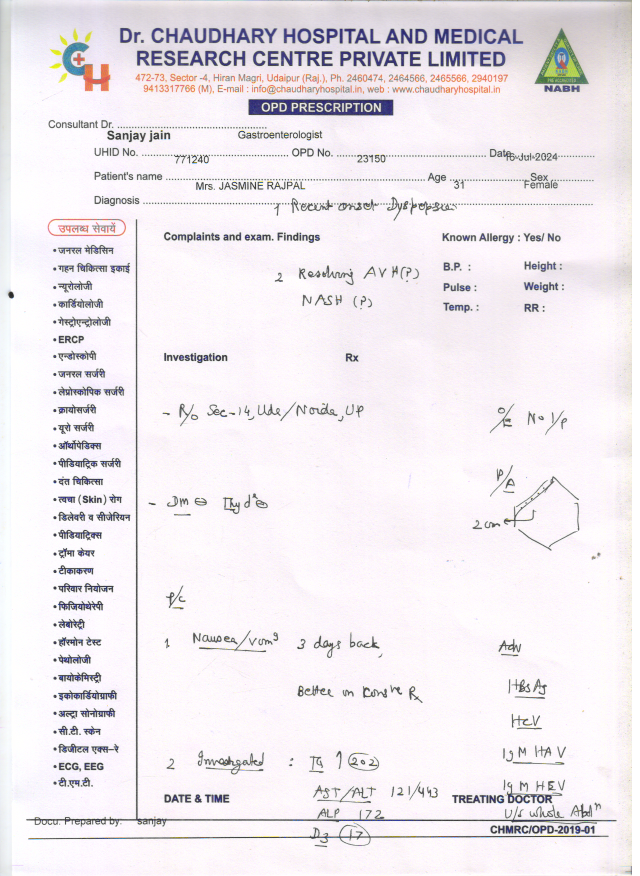 Dr. CHAUDHARY HOSPITAL AND MEDICAL
RESEARCH CENTRE PRIVATE LIMITED
472-73, Sector -4, Hiran Magri, Udaipur (Raj.), Ph. 2460474, 2464566, 2465566, 2940197
9413317766 (M), E-mail : info@chaudharyhospital.in, web : www.chaudharyhospital.in
CH
NABH
OPD PRESCRIPTION
Consultant Dr. ............
Sanjay jain Gastroenterologist
UHID No. ............ OPD No. ............ Date............
771240 23150 16-Jul-2024
Patient's name ............ Age ............ Sex ............
Mrs. JASMINE RAJPAL 31 Female
Diagnosis ............
1 Recent onset Dyspepsia
उपलब्ध सेवायें
• जनरल मेडिसिन
• गहन चिकित्सा इकाई
• न्यूरोलोजी
• कार्डियोलोजी
• गेस्ट्रोएन्ट्रोलोजी
• ERCP
• एन्डोस्कोपी
• जनरल सर्जरी
• लेप्रोस्कोपिक सर्जरी
• क्रायोसर्जरी
• यूरो सर्जरी
• ऑर्थोपेडिक्स
• पीडियाट्रिक सर्जरी
• दंत चिकित्सा
• त्वचा (Skin) रोग
• डिलेवरी व सीजेरियन
• पीडियाट्रिक्स
• ट्रॉमा केयर
• टीकाकरण
• परिवार नियोजन
• फिजियोथेरेपी
• लेबोरेट्री
• हॉरमोन टेस्ट
• पेथोलोजी
• बायोकेमिस्ट्री
• इकोकार्डियोग्राफी
• अल्ट्रा सोनोग्राफी
• सी.टी. स्केन
• डिजीटल एक्स-रे
• ECG, EEG
• टी.एम.टी.
Complaints and exam. Findings Known Allergy : Yes/ No
B.P. : Height :
Pulse : Weight :
Temp. : RR :
2 Resolving AVH(P)
NASH (P)
Investigation Rx
- R/o Sec-14, Ude/Noida, UP
O/E No I/P
P/A
2 cm
- DM ⊖ Thyd ⊖
P/C
1 Nausea/vomg 3 days back,
Better on Konsve Rx
2 Investigated : TG ↑ 202
AST/ALT 121/443
ALP 172
D3 17
Adv
HBsAg
HCV
IgM HAV
IgM HEV
U/S whole Abdn
DATE & TIME TREATING DOCTOR
Docu. Prepared by: sanjay
CHMRC/OPD-2019-01